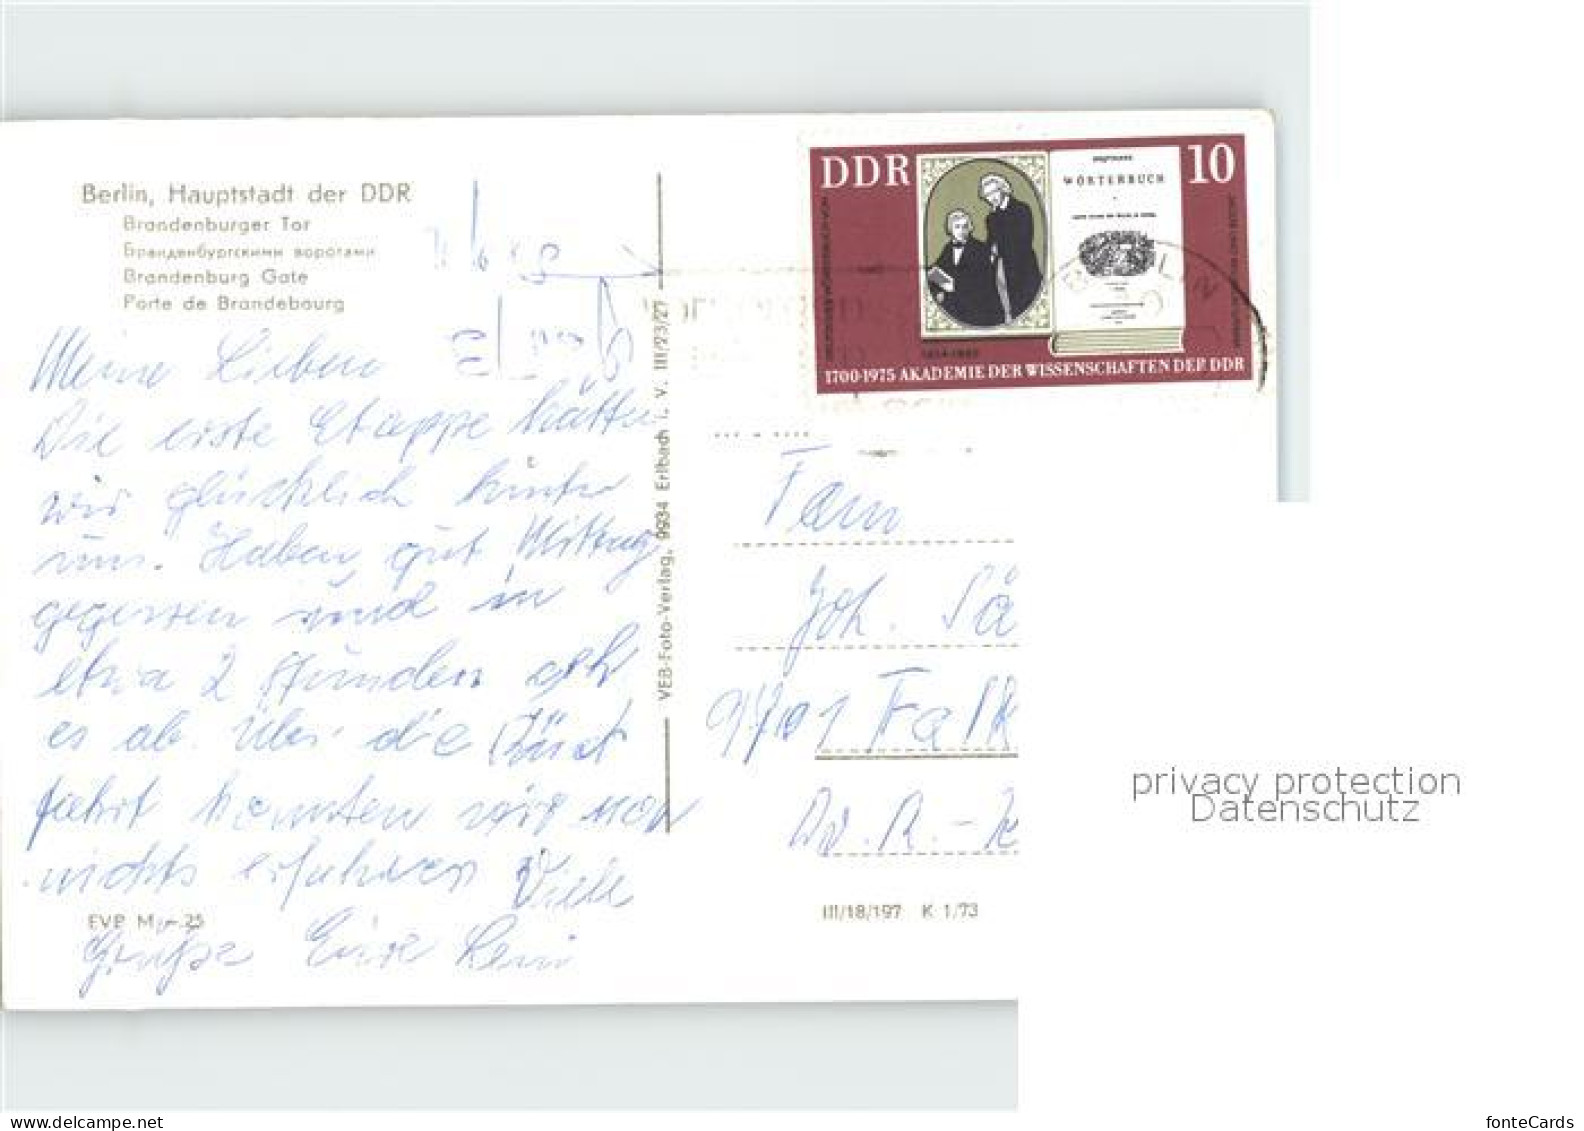 Berlin, Hauptstadt der DDR
Brandenburger Tor
Бранденбургскими воротами
Brandenburg Gate
Porte de Brandebourg
Meine Lieben
Die erste Etappe hätten
wir glücklich hinter
uns. Haben gut Mittag
gegessen und in
etwa 2 Stunden geht
es ab. Über die
fahrt konnten wir noch
nichts erfahren Viele
Grüße Eure
EVP M -,25
VEB-Foto-Verlag, 9934 Erlbach i. V. III/23/27
DDR
10
WÖRTERBUCH
1700-1975 AKADEMIE DER WISSENSCHAFTEN DER DDR
BERLIN
Fam
Joh. Sä
9701 Falk
III/18/197 K 1/73
privacy protection
Datenschutz
fonteCards